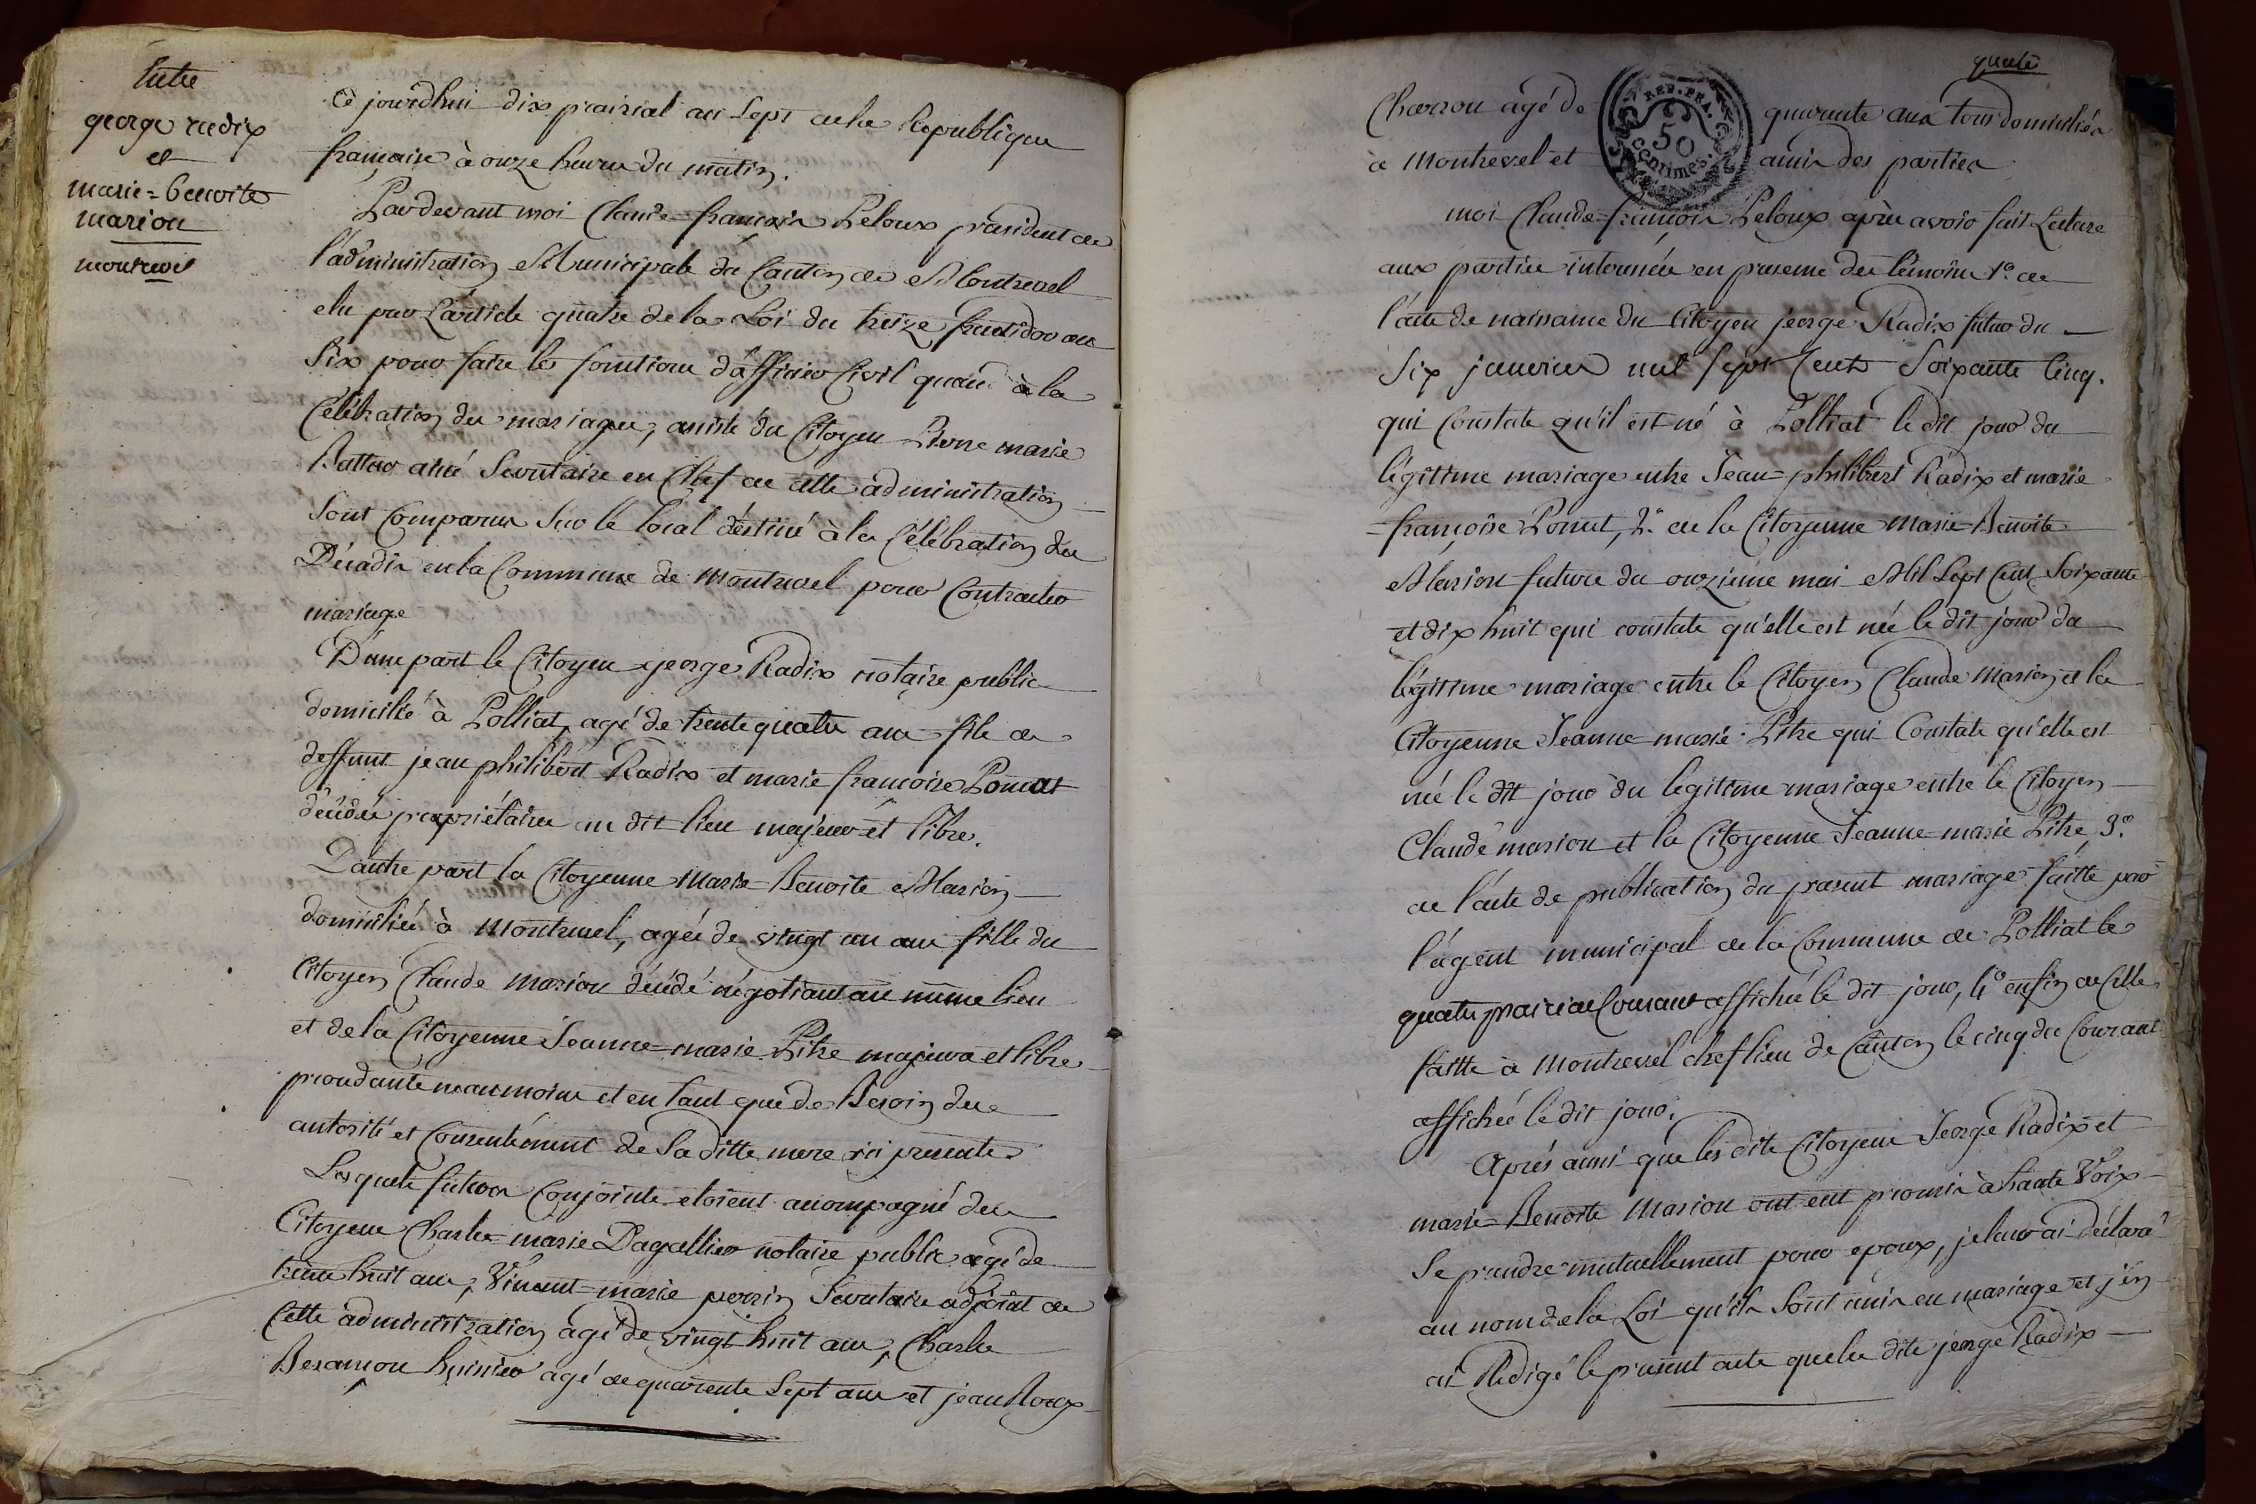 Entre
george radix
et
marie=benoite
marion
montrevel
Ce jourdhui dix prairial an Sept de la Republique
française à onze heures du matin.
Pardevant moi Claude=françois Peloux president de
l'administration Municipale du Canton de Montrevel
elu par L'article quatre de la Loi du treize fructidor an
Six pour faire les fonctions d'officier Civil quand à la
Célébration des mariages, assisté du Citoyen Pierre marie
ainé Secretaire en Chef de cette administration
Sont Comparus Sur le local déstiné à la Célébration des
Décadis en la Commune de Montrevel pour Contracter
mariage
D'une part le Citoyen george Radix notaire public
domicilié à Polliat, agé de trente quatre ans fils de
deffunt jean philibert Radix et marie francoise Ponnat
décédés propriétaires au dit lieu majeur et libre.
D'autre part la Citoyenne Marie=Benoite Marion
domiciliée à Montrevel, agée de vingt un ans fille du
Citoyen Claude Marion décédé négotiant au même lieu
et de la Citoyenne Jeanne=marie Pitre majeure et libre
procedante neanmoins et en tant que de Besoin des
autorité et Consentement de Sa ditte mere ici presente.
Lesquels futurs Conjoints etoient accompagné des
Citoyens Charles=marie Dagallier notaire public agé de
trente huit ans, Vincent=marie perrin Secretaire adjoint de
Cette administration agé de vingt huit ans, Charles
Besançon huissier agé de quarente Sept ans et jean Roux
quatre
REP. FRA.
50
CENTIMES.
Charron agé de quarante ans tous domiciliés
à Montrevel et amis des parties
moi Claude=françois Peloux après avoir fait Lecture
aux parties interessées en presence des témoins 1.º de
l'acte de naissance du Citoyen jeorge Radix futur du
Six janvier mil Sept Cents Soixante Cinq.
qui Constate qu'il est né à Polliat le dit jour du
légitime mariage entre Jean=philibert Radix et marie
=françoise Ponnat, 2.º de la Citoyenne Marie=Benoite
Marion future du onzieme mai Mil Sept Cent Soixante
et dix huit qui constate qu'elle est née le dit jour du
légitime mariage entre le Citoyen Claude Marion et la
Citoyenne Jeanne=marie Pitre qui Constate qu'elle est
née le dit jour du legitime mariage entre le Citoyen
Claude marion et la Citoyenne Jeanne=marie Pitre, 3.º
de l'acte de publication du present mariage faitte par
l'agent municipal de la Commune de Polliat le
quatre prairial Courant affichée le dit jour, 4.º enfin de Celle
faitte à Montrevel chef lieu de Canton le cinq du Courant
affichée le dit jour.
Après aussi que les dits Citoyens Jeorge Radix et
marie=Benoite Marion ont eut promis à haute Voix
Se prendre mutuellement pour epoux, je leur ai déclaré
au nom de la Loi qu'ils Sont unis en mariage et j'en
ai Rédigé le present acte que les dits jeorge Radix